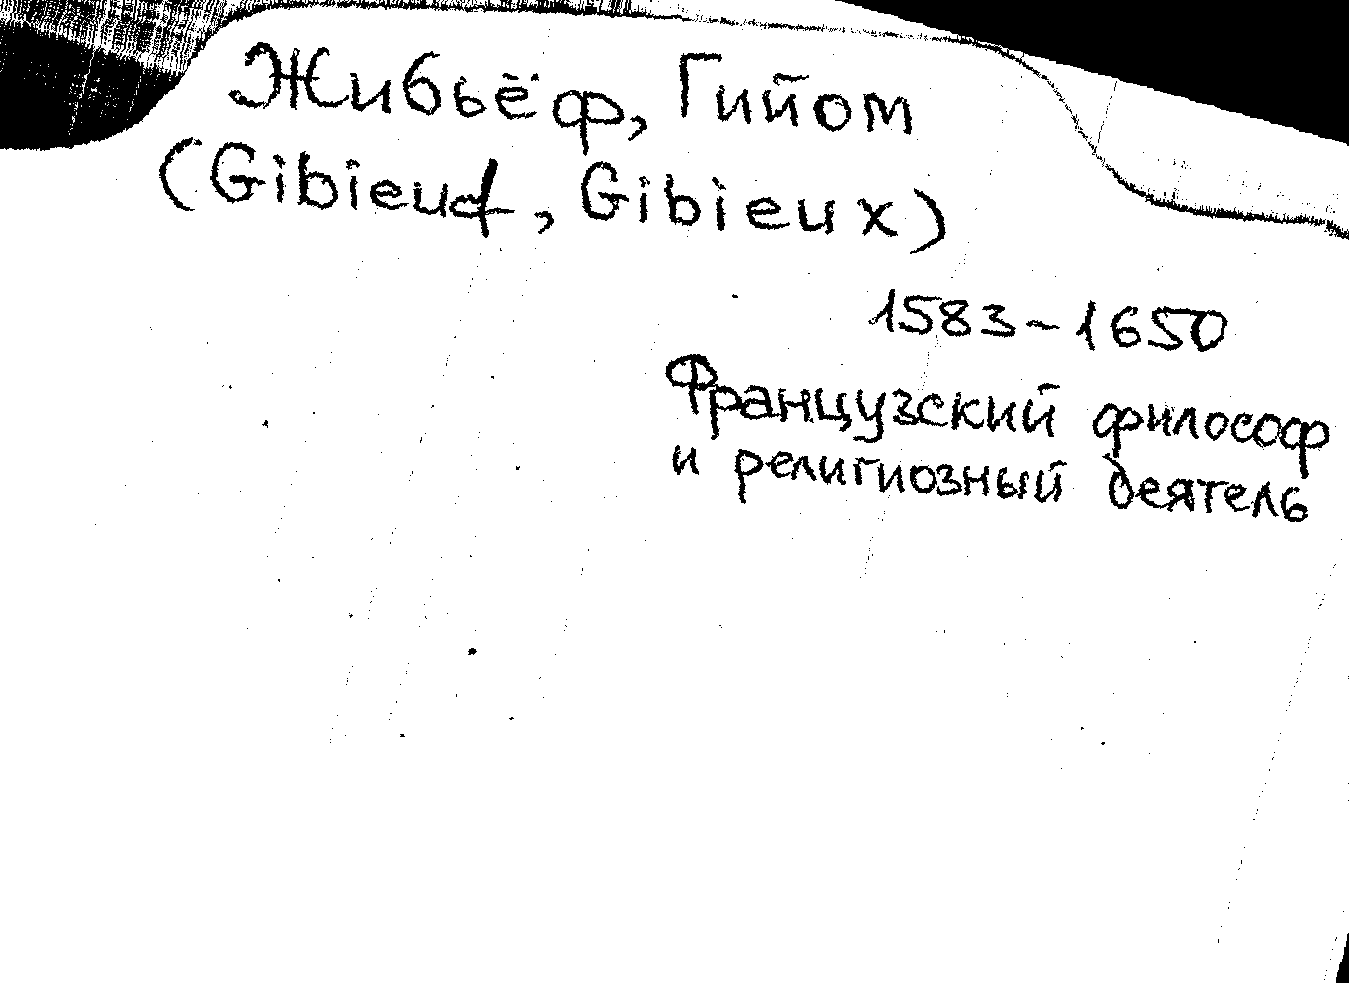 Жибьёф, Гийом
(Gibieuf, Gibieux)
1583-1650
Французский философ
и религиозный деятель